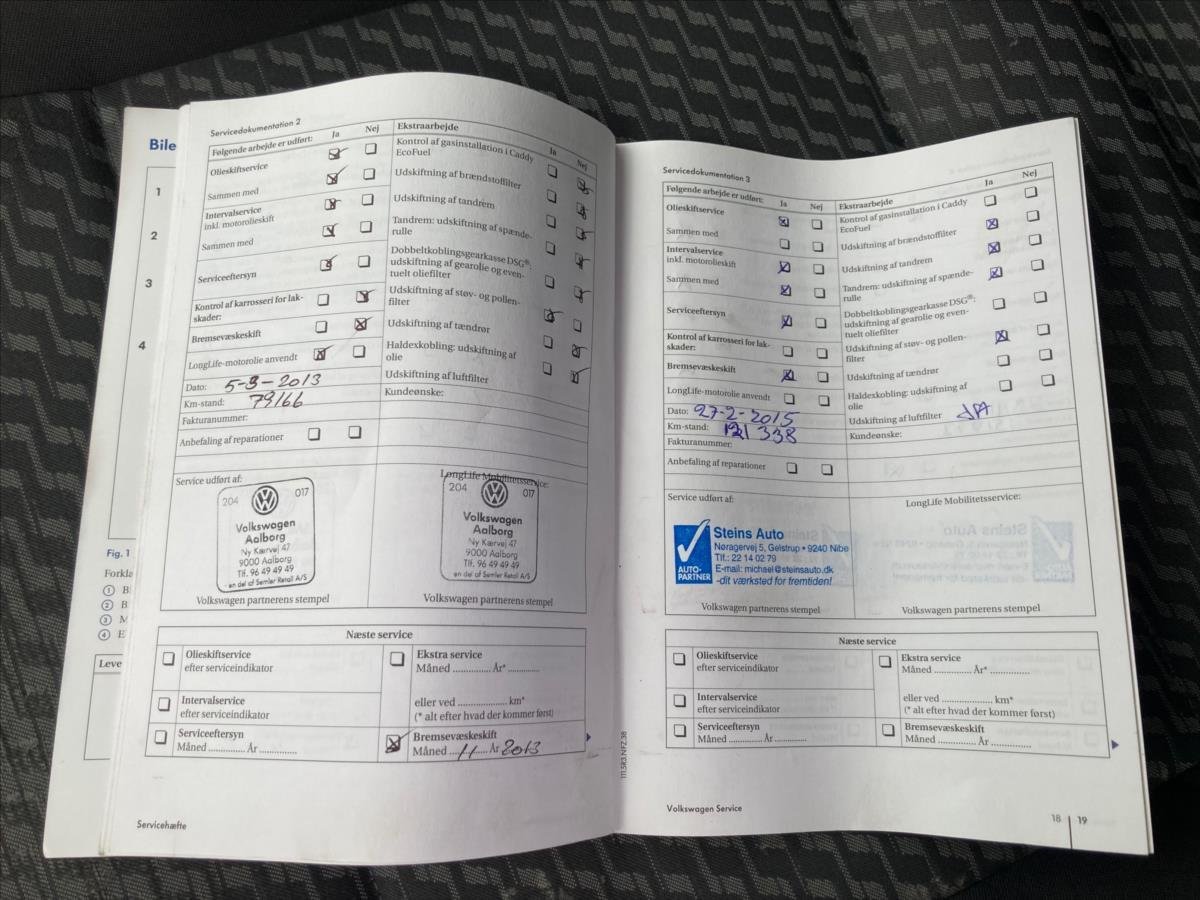 Bile
1
2
3
4
Fig. 1
Forkla
1 B
2 B
3 M
4 E
Leve
Servicedokumentation 2
Følgende arbejde er udført: Ja Nej
Olieskiftservice
Sammen med
Intervalservice
inkl. motorolieskift
Sammen med
Serviceeftersyn
Kontrol af karrosseri for lak-
skader:
Bremsevæskeskift
LongLife-motorolie anvendt
Dato: 5-9-2013
Km-stand: 79166
Fakturanummer:
Anbefaling af reparationer
Ekstraarbejde Ja Nej
Kontrol af gasinstallation i Caddy
EcoFuel
Udskiftning af brændstoffilter
Udskiftning af tandrem
Tandrem: udskiftning af spænde-
rulle
Dobbeltkoblingsgearkasse DSG®:
udskiftning af gearolie og even-
tuelt oliefilter
Udskiftning af støv- og pollen-
filter
Udskiftning af tændrør
Haldexkobling: udskiftning af
olie
Udskiftning af luftfilter
Kundeønske:
Service udført af:
204 017
Volkswagen
Aalborg
Ny Kærvej 47
9000 Aalborg
Tlf. 96 49 49 49
- en del af Semler Retail A/S
Volkswagen partnerens stempel
LongLife Mobilitetsservice:
204 017
Volkswagen
Aalborg
Ny Kærvej 47
9000 Aalborg
Tlf. 96 49 49 49
- en del af Semler Retail A/S
Volkswagen partnerens stempel
Næste service
Olieskiftservice
efter serviceindikator
Intervalservice
efter serviceindikator
Serviceeftersyn
Måned ............. År .............
Ekstra service
Måned ............. År* .............
eller ved ............. km*
(* alt efter hvad der kommer først)
Bremsevæskeskift
Måned 11 År 2013
Servicehæfte
111.5R3.NFZ.38
Servicedokumentation 3
Følgende arbejde er udført: Ja Nej
Olieskiftservice
Sammen med
Intervalservice
inkl. motorolieskift
Sammen med
Serviceeftersyn
Kontrol af karrosseri for lak-
skader:
Bremsevæskeskift
LongLife-motorolie anvendt
Dato: 27-2-2015
Km-stand: 121 338
Fakturanummer:
Anbefaling af reparationer
Ekstraarbejde Ja Nej
Kontrol af gasinstallation i Caddy
EcoFuel
Udskiftning af brændstoffilter
Udskiftning af tandrem
Tandrem: udskiftning af spænde-
rulle
Dobbeltkoblingsgearkasse DSG®:
udskiftning af gearolie og even-
tuelt oliefilter
Udskiftning af støv- og pollen-
filter
Udskiftning af tændrør
Haldexkobling: udskiftning af
olie
Udskiftning af luftfilter JA
Kundeønske:
Service udført af:
AUTO-
PARTNER
Steins Auto
Nøragervej 5, Gelstrup • 9240 Nibe
Tlf.: 22 14 02 79
E-mail: michael@steinsauto.dk
-dit værksted for fremtiden!
Volkswagen partnerens stempel
LongLife Mobilitetsservice:
Volkswagen partnerens stempel
Næste service
Olieskiftservice
efter serviceindikator
Intervalservice
efter serviceindikator
Serviceeftersyn
Måned ............. År .............
Ekstra service
Måned ............. År* .............
eller ved ............. km*
(* alt efter hvad der kommer først)
Bremsevæskeskift
Måned ............. År .............
Volkswagen Service
18 19